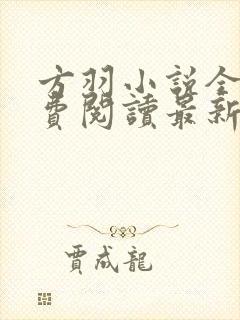 方羽小說全
費閱讀最新
賈成龍